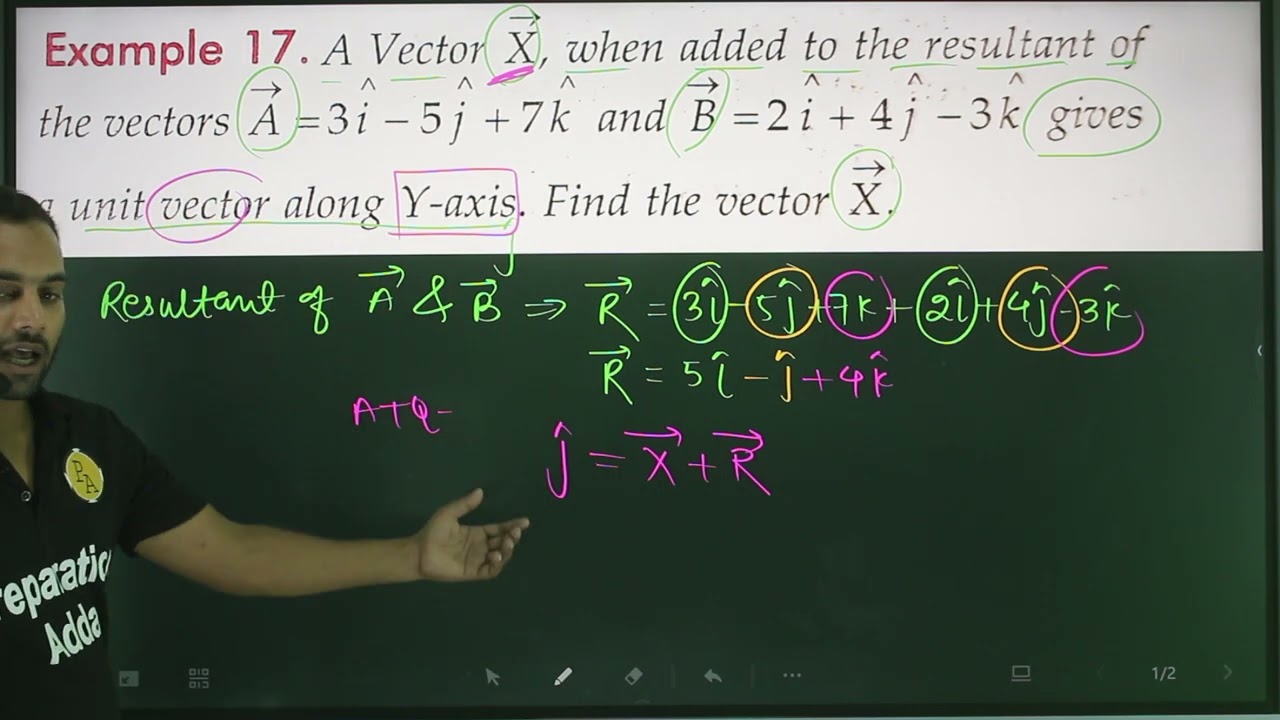 Example 17. A Vector X⃗, when added to the resultant of
the vectors A⃗ = 3î − 5ĵ + 7k̂ and B⃗ = 2î + 4ĵ − 3k̂ gives
unit vector along Y-axis. Find the vector X⃗.
ĵ
Resultant of A⃗ & B⃗ ⇒ R⃗ = 3î − 5ĵ + 7k + 2î + 4ĵ − 3k̂
R⃗ = 5î − ĵ + 4k̂
A+Q-
ĵ = X⃗ + R⃗
PA
reparatio
Adda
1/2